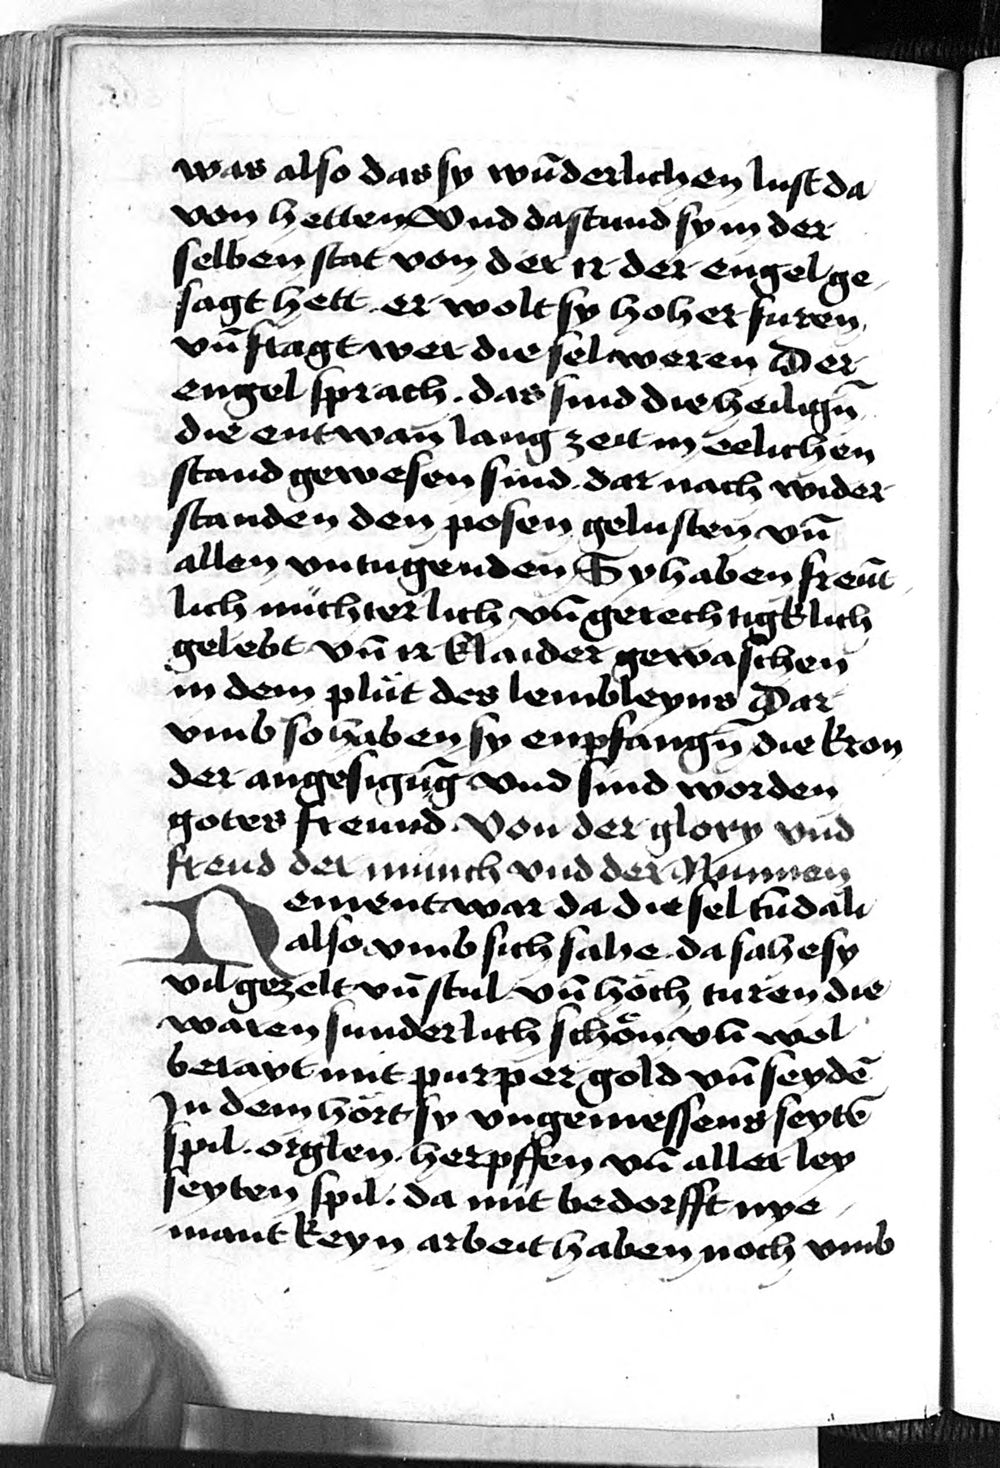 was also das sy wūderlichen lust da
von hetten Vnd da stund sy in der
selben stat von der ir der engel ge
sagt hett . er wolt sy hoher furen
vn̄ fragt wer die sel weren Der
engel sprach . das sind die heilign̄
die entwan lang zeit in eelichen
stand gewesen sind . dar nach wider
standen den posen gelusten vn̄
allen vntugenden Sy haben freūt
lich nüchterlich vn̄ gerechtigklich
gelebt vn̄ ir klaider gewaschen
in dem plüt des lembleyns Dar
vmb so haben sy enpfangn̄ die kron
der angesigūg vnd sind worden
gotes freund . Von der glory vnd
freud der münch vnd der Nunnen
Nement war da die sel tūdali
also vmb sich sahe . da sahe sy
vil gezelt vn̄ stul vn̄ höch turen die
waren sunderlich schön vn̄ wol
berayt mit purper gold vn̄ seydē
In dem hört sy vngemessens seytē
spil . orglen . herpffen vn̄ aller ley
seyten spil . da mit bedorfft nye
mant keyn arbeit haben noch vmb